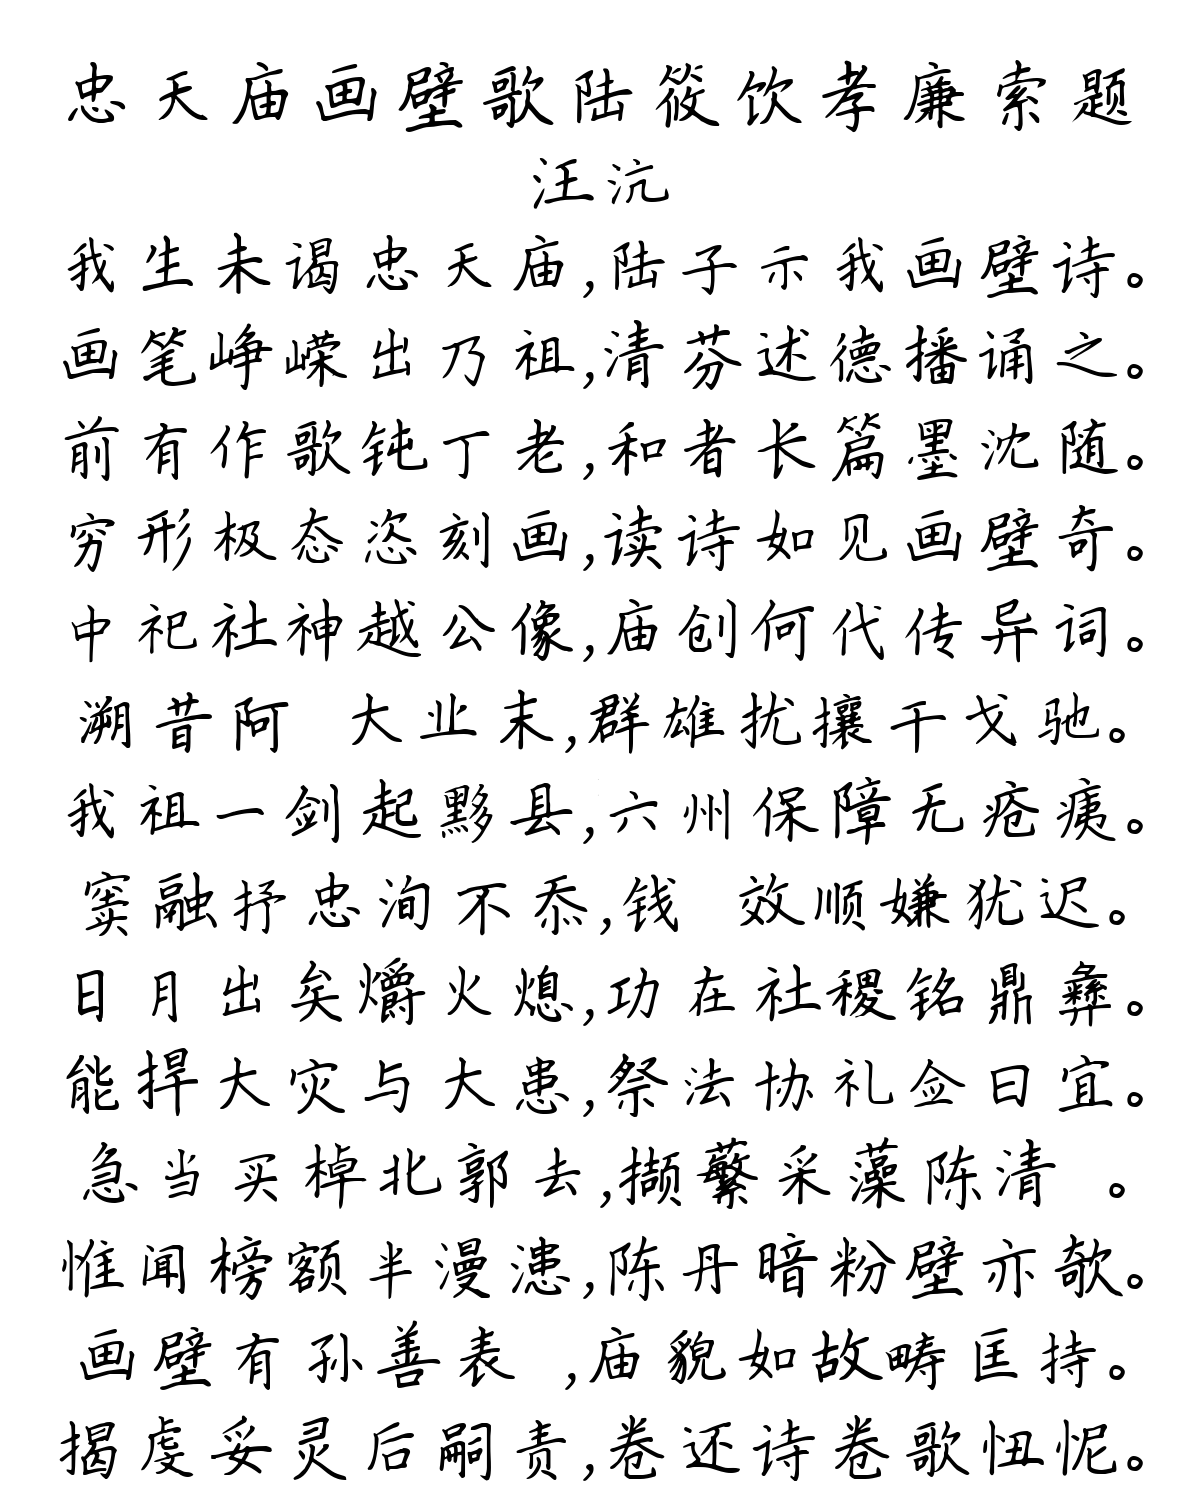 忠天庙画壁歌陆筱饮孝廉索题
汪沆
我生未谒忠天庙,陆子示我画壁诗。
画笔峥嵘出乃祖,清芬述德播诵之。
前有作歌钝丁老,和者长篇墨沈随。
穷形极态恣刻画,读诗如见画壁奇。
中祀社神越公像,庙创何代传异词。
溯昔阿 大业末,群雄扰攘干戈驰。
我祖一剑起黟县,六州保障无疮痍。
窦融抒忠洵不忝,钱 效顺嫌犹迟。
日月出矣爝火熄,功在社稷铭鼎彝。
能捍大灾与大患,祭法协礼佥曰宜。
急当买棹北郭去,撷蘩采藻陈清 。
惟闻榜额半漫漶,陈丹暗粉壁亦欹。
画壁有孙善表 ,庙貌如故畴匡持。
揭虔妥灵后嗣责,卷还诗卷歌忸怩。